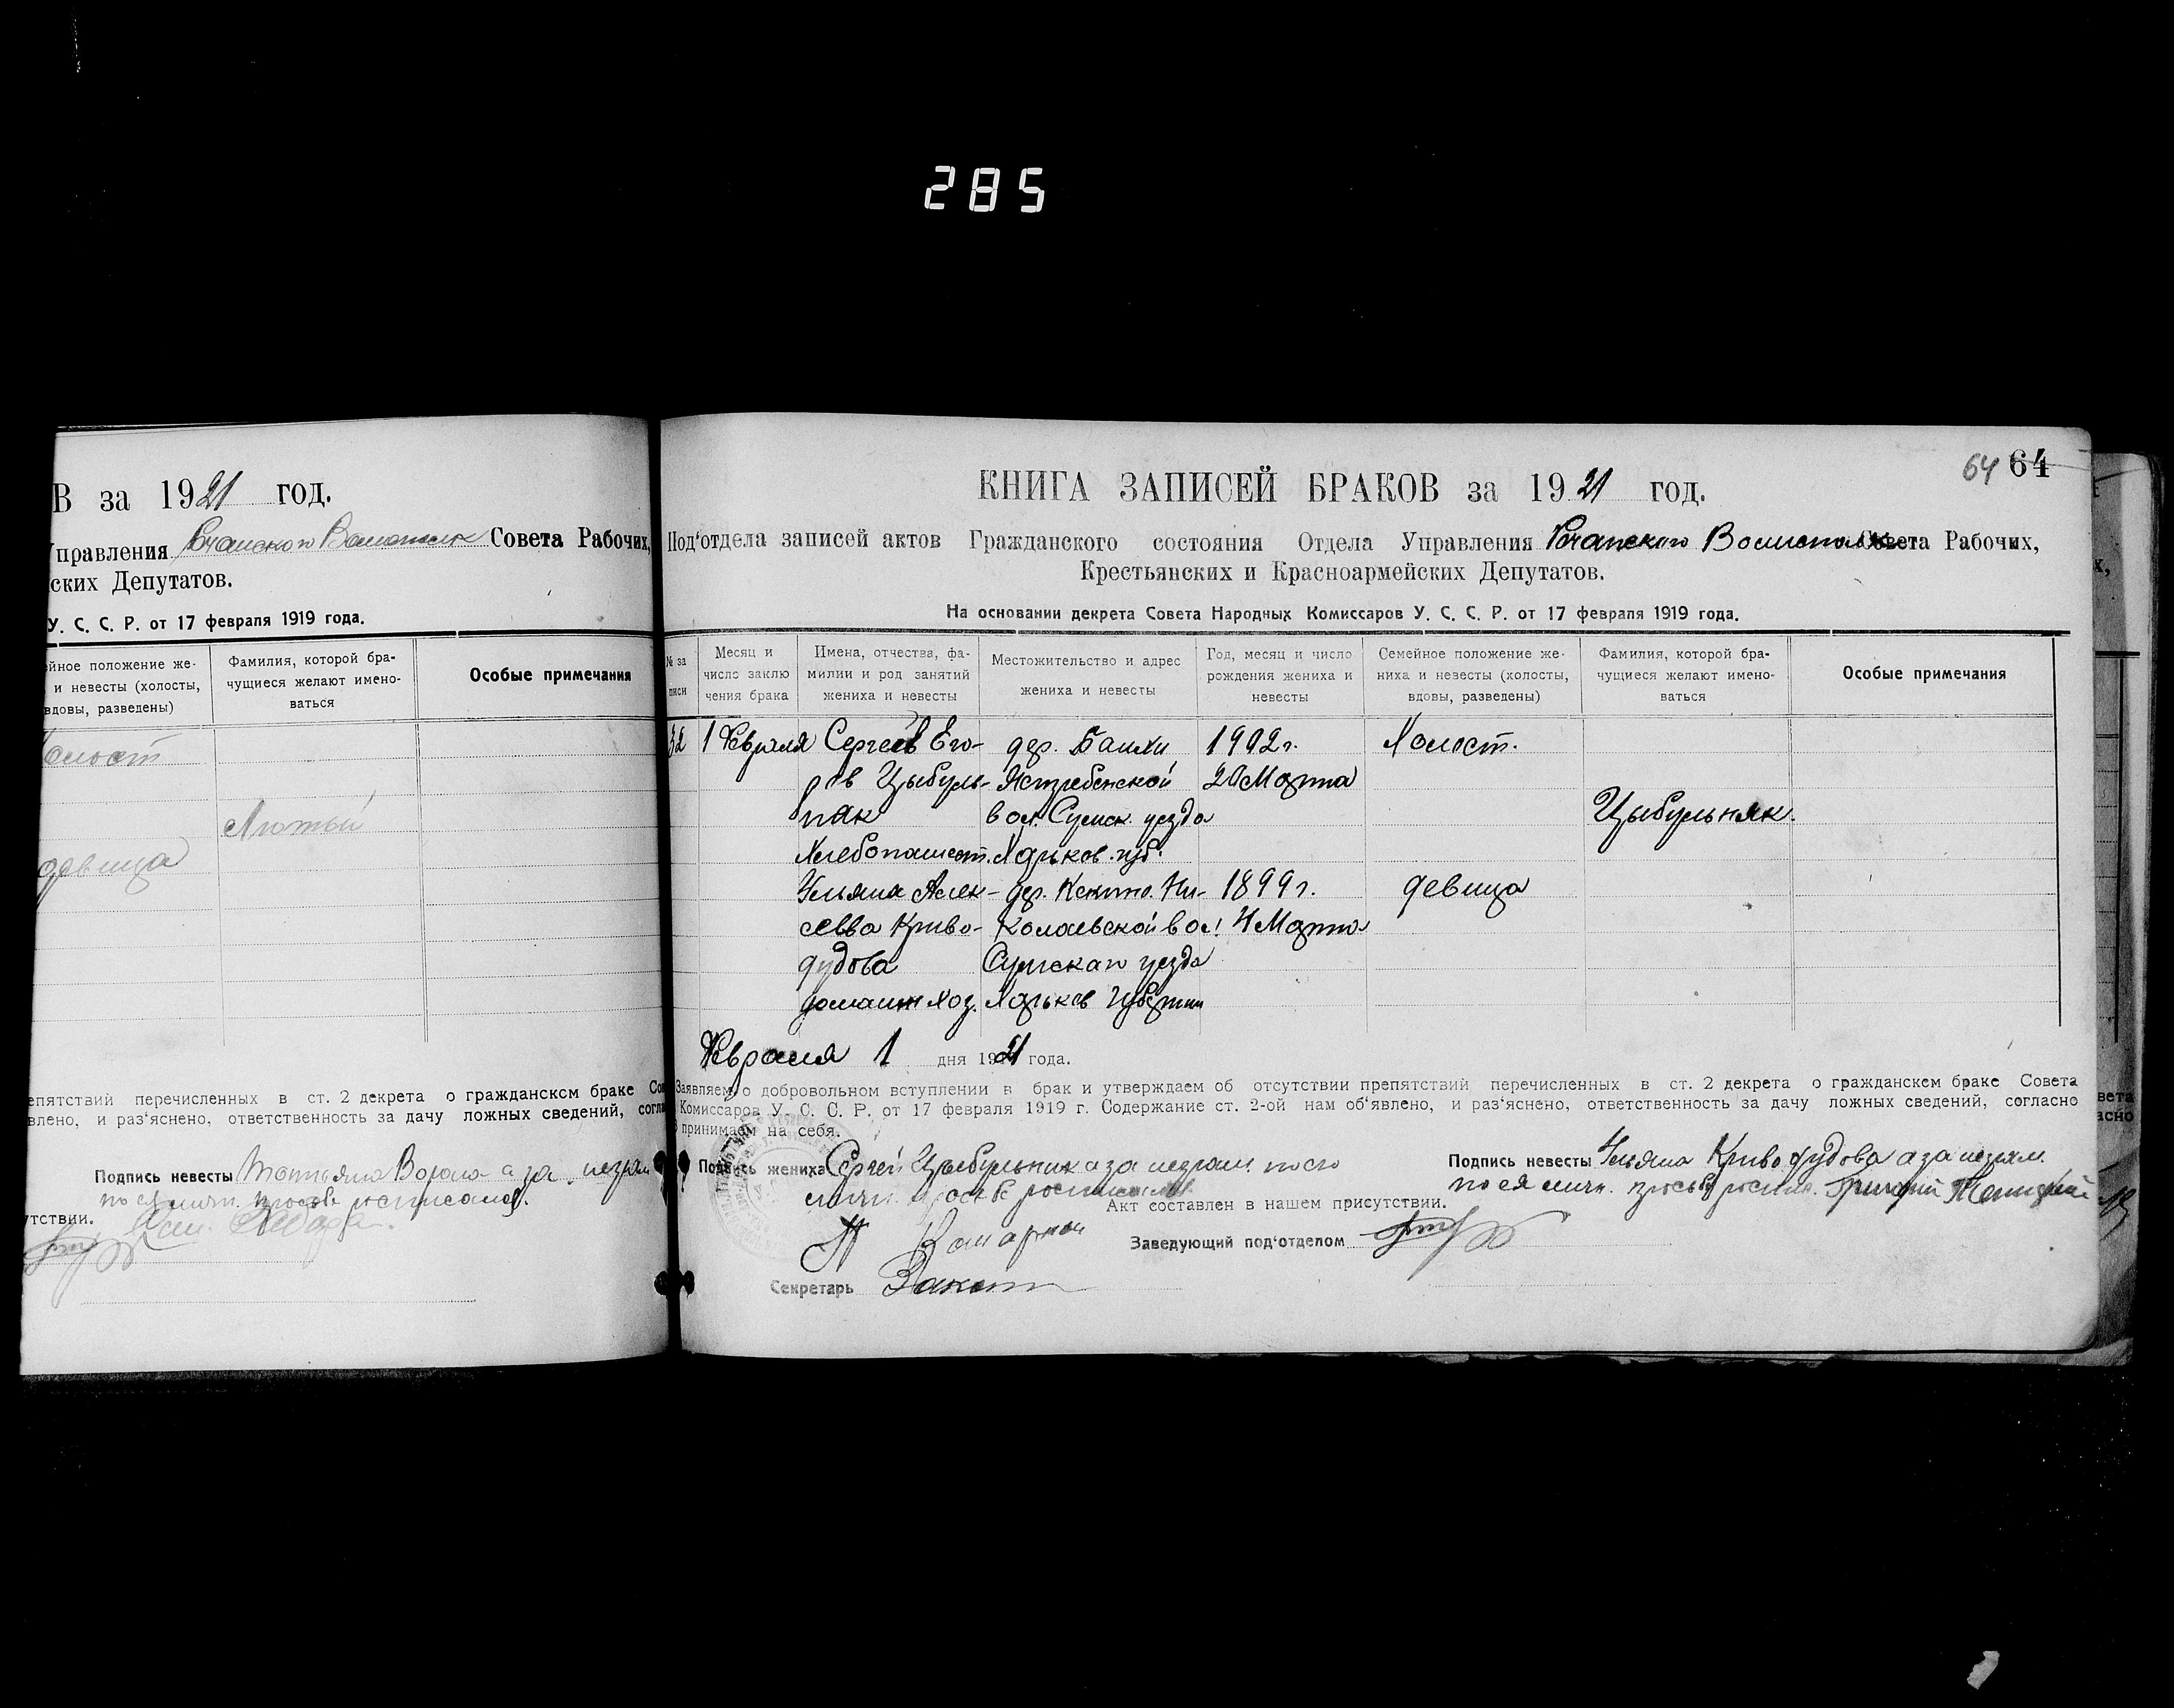 285
В за 1921 год.
Управления Совета Рабочих,
ских Депутатов.
У. С. С. Р. от 17 февраля 1919 года.
ейное положение же-
и невесты (холосты,
вдовы, разведены)
Фамилия, которой бра-
чущиеся желают имено-
ваться
Особые примечания
Холост
Лютый
девица
епятствий перечисленных в ст. 2 декрета о гражданском браке Со
влено, и раз‘яснено, ответственность за дачу ложных сведений, согла
Подпись невесты Татьяна а за неграм
по ея личн. просьбе росписался.
утствии.
64 64
КНИГА ЗАПИСЕЙ БРАКОВ за 1921 год.
Под‘отдела записей актов Гражданского состояния Отдела Управления Совета Рабочих,
Крестьянских и Красноармейских Депутатов.
На основании декрета Совета Народных Комиссаров У. С. С. Р. от 17 февраля 1919 года.
№ за
писи
Месяц и
число заклю
чения брака
Имена, отчества, фа-
милии и род занятий
жениха и невесты
Местожительство и адрес
жениха и невесты
Год, месяц и число
рождения жениха и
невесты
Семейное положение же-
ниха и невесты (холосты,
вдовы, разведены)
Фамилия, которой бра-
чущиеся желают имено-
ваться
Особые примечания
32 1 Февраля Сергей Его- дер. 1902 г. Холост.
ров Цыбуль- Ястребенской 20 Марта
няк вол. Сумск. уезда Цыбульняк.
Хлебопашест. Харьков. губ.
Ульяна Алек- дер. Ни- 1899 г. девица
севва Криво- колаевской вол. 4 Марта
дудова Сумскаго уезда
домашн хоз. Харьков Губернии
Февраля 1 дня 1921 года.
Заявляем о добровольном вступлении в брак и утверждаем об отсутствии препятствий перечисленных в ст. 2 декрета о гражданском браке Совета
Комиссаров У. С. С. Р. от 17 февраля 1919 г. Содержание ст. 2-ой нам об‘явлено, и раз‘яснено, ответственность за дачу ложных сведений, согласно
принимаем на себя.
Подпись жениха Сергей Цыбульник а за неграм. по его
личн. просьбе росписался
Подпись невесты Ульяна Криводудова а за неграм.
по ея личн. просьбе роспис. Григорий
Акт составлен в нашем присутствии.
Заведующий под‘отделом
Секретарь